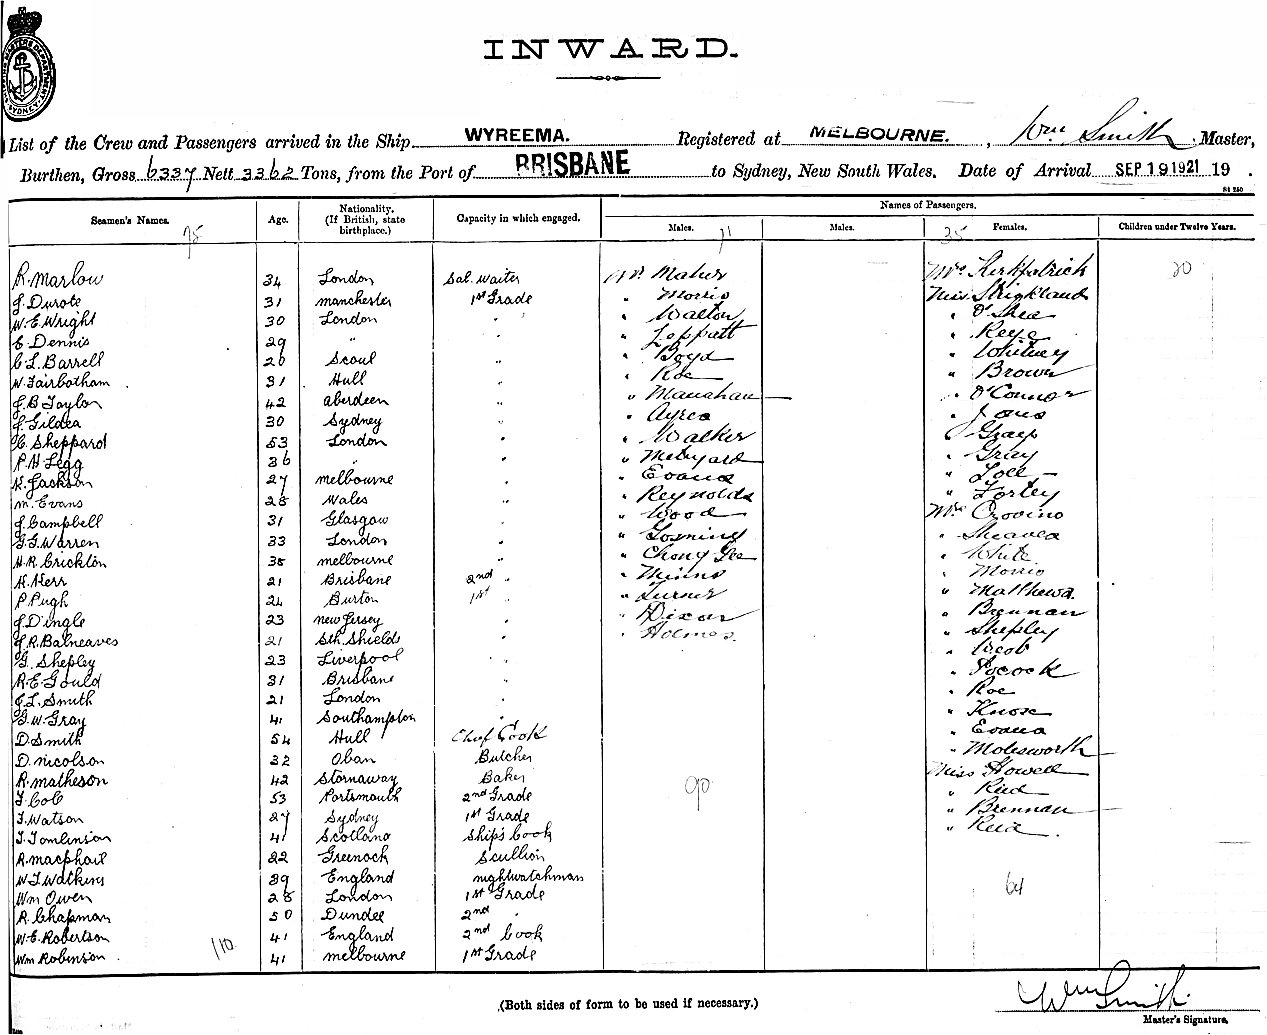 INWARD.
List of the Crew and Passengers arrived in the Ship WYREEMA. Registered at MELBOURNE. , Wm Smith , Master,
Burthen, Gross 6337 Nett 3362 Tons, from the Port of BRISBANE to Sydney, New South Wales. Date of Arrival SEP 19 1921 19 .
Seamen's Names. Age. Nationality. (If British, state birthplace.) Capacity in which engaged. Names of Passengers.
Males. Males. Females. Children under Twelve Years.
75 71 35
R. Marlow 34 London Sal. Waiter Mr. Maher Mrs Kirkpatrick 20
J. Durote 31 Manchester 1st Grade " Morris Miss Strickland
W. E. Wright 30 London " " Walton " O'Shea
E. Dennis 29 " " "
C L. Barrell 26 " " Boyd " Whitney
W. Fairbotham 31 Hull " " Roe " Brown
J. B Taylon 42 Aberdeen " " Manahan " O'Connor
J. Gildea 30 Sydney " " Ayres "
C. Sheppard 53 London " " Walker "
P. H Legg 36 " " " " Gray
K. Jackson 27 Melbourne " " Evans "
M. Evans 28 Wales " " Reynolds " Forley
J. Campbell 31 Glasgow " " Wood Mrs Crovino
G. G. Warren 33 London " " "
H. R. Crickton 38 Melbourne " " Chong Gee " White
H. Kerr 21 Brisbane 2nd " " Minns " Morris
P Pugh 24 Burton 1st " " Turner " Matthews
J. Dingle 23 New Jersey " " Dixon " Brennan
J. R. Balneaves 21 Sth. Shields " " Holmes " Shepley
G. Shepley 23 Liverpool " " Webb
R. E Gould 31 Brisbane " " Pocock
C L. Smith 21 London " " Roe
G. W. Gray 41 Southampton " " Knose
D. Smith 54 Hull Chief Cook " Evans
D. Nicolson 32 Oban Butcher " Molesworth
R. Matheson 42 Stornaway Baker Miss Howell
J. Cob 53 Portsmouth 2nd Grade 90 " Ried
J. Watson 27 Sydney 1st Grade " Brennan
J. Tomlinson 41 Scotland Ship's Cook " Reid
R. Macphail 22 Greenock Scullion
W J Watkins 39 England Nightwatchman 64
Wm Owen 28 London 1st Grade
R. Chapman 50 Dundee 2nd "
W. E. Robertson 41 England 2nd Cook
Wm Robinson 110 41 Melbourne 1st Grade
(Both sides of form to be used if necessary.)
Wm Smith
Master's Signature.